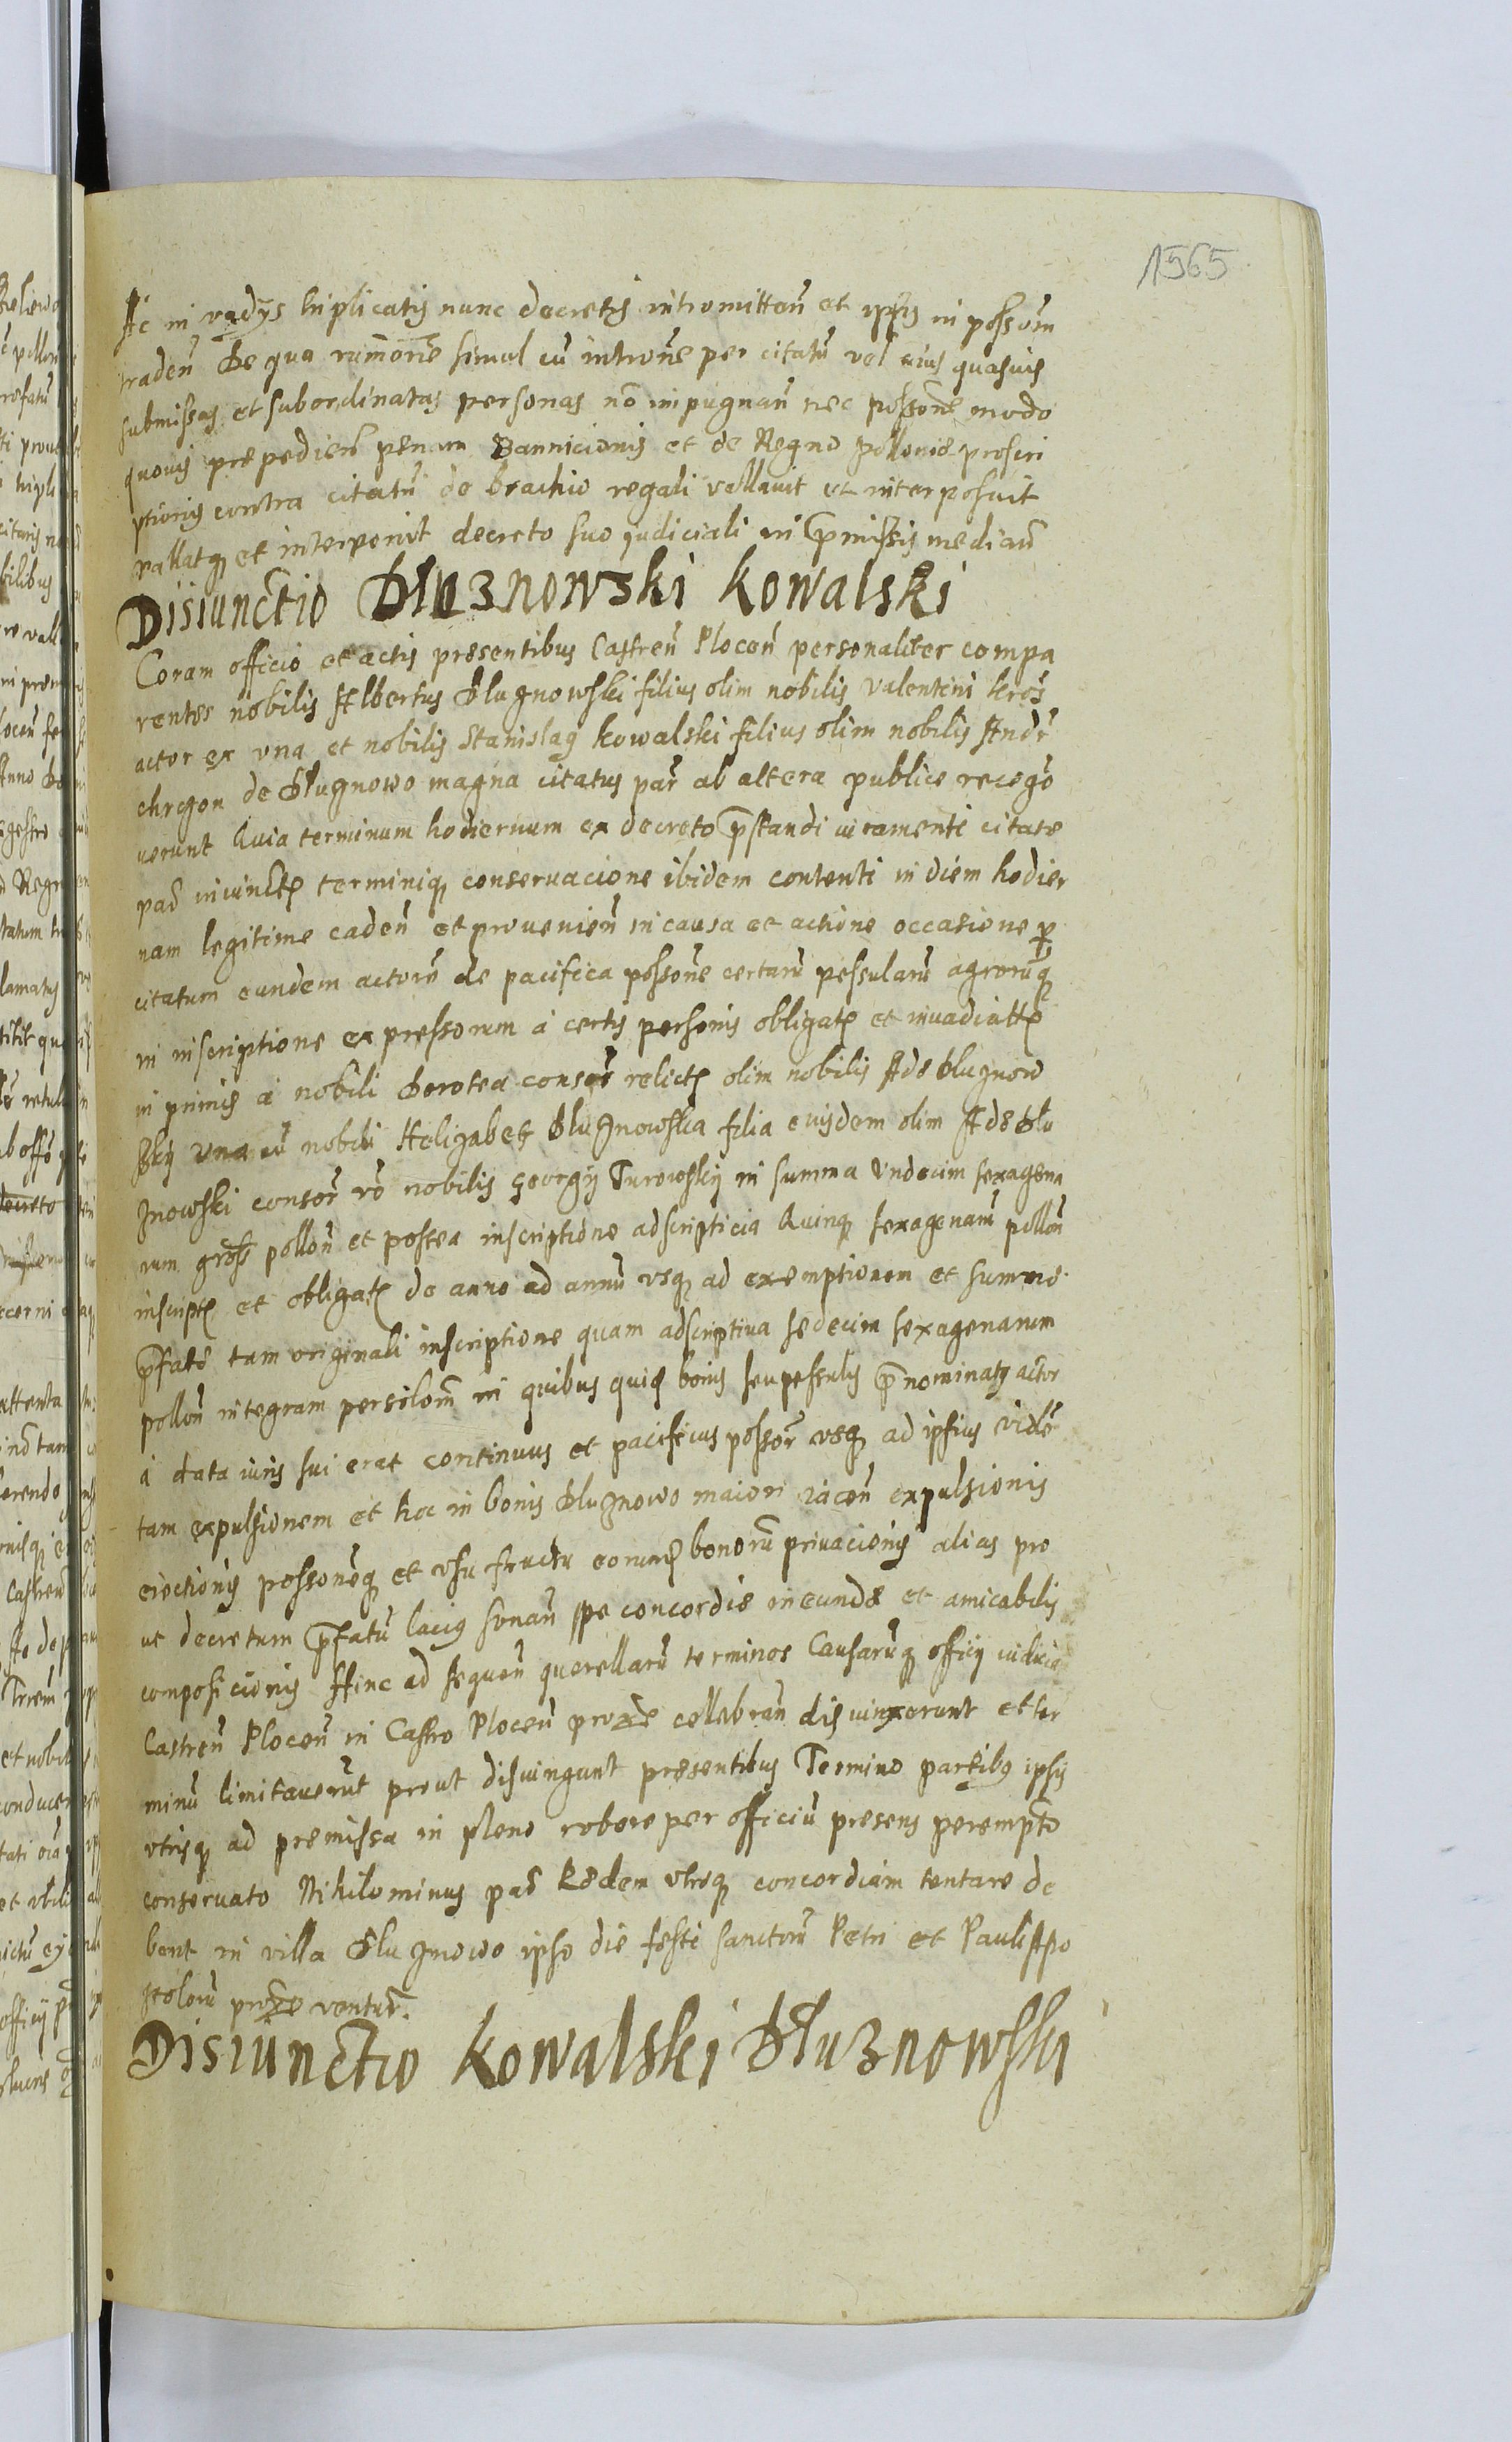 1565
Ac in vadys triplicatis nunc decretis intromitten̄ et ipsis in possom̄
traden̄ De qua rumone simul cū introne per citatū vel eius quasuis
submissas et subordinatas personas nō impugnan̄ nec possone modo
quovis præpedien̄ penam Bannicionis et de Regno Pollonie proscri
ptionis contra citatū de brachio regali vallavit et interposuit
vallatq3 et interponit decreto suo judiciali in p̄missis median̄
Disiunctio Dłuznowski Kowalski
Coram officio et actis præsentibus Castren̄ Plocen̄ personaliter compa
rentes nobilis Albertus Dluznowski filius olim nobilis Valentini heres
actor ex vna et nobilis Stanislaq Kowalski filius olim nobilis Andr̄
chrzon de Dłuznowo magna citatus par̄ ab altera publice recogō
uerunt Quia terminum hodiernum ex decreto p̄standi iuramenti citate
par̄ iniunctę terminiq3 conseruacione ibidem contenti in diem hodier
nam legitime caden̄ et provenien̄ in causa et actione occasione p
citatum eundem actorē de pacifica possone certarū pessularū agrorūq3
in inscriptione expressorum a certis personis obligatę et invadiattę
in primis a nobili Dorotea consor̄ relictę olim nobilis Ade Dluznow
sky vna cū nobili Helizabet Dluznowska filia eiusdem olim Ade Dlu
znowski consor̄ vō nobilis Georgy Turowsky in summa Vndecim sexagena
rum gross pollon̄ et postea inscriptione adscripticia Quinq3 sexagenarū pollon̄
inscriptę et obligatę de anno ad annū vsq3 ad exemptionem et summe
p̄fate tam originali inscriptione quam adscriptiua sedecim sexagenarum
pollon̄ integram persolom̄ in quibus quid bonis seu pessulis p̄nominatq actor
a data iuris sui erat continuus et pacificus possor̄ vsq3 ad ipsius videl̄
tam expulsionem et hoc in bonis Dluznowo maiori iacen̄ expulsionis
eiectionis possonēq3 et vsu fructu eorumd bonorū privacionis alias pro
ut decretum p̄fatū lacius sonan̄ spe concordie ineunde et amicabilis
composicionis Hinc ad sequen̄ querellarū terminos Causarūq3 officij iudicia
Castren̄ Plocen̄ in Castro Plocen̄ proxe celebran̄ disiunxerunt et ter
minū limitauerūt prout disiungunt præsentibus Termino partibq ipsis
vtrisq3 ad premissa in pleno robore per officiū presens perempto
conseruato Nihilominus par̄ Eedem vtreq3 concordiam tentare de
bent in villa Dluznowo ipso die festi sanctorū Petri et Pauli Apo
stolorū proxe ventur̄.
Disiunctio Kowalski Dłuznowski